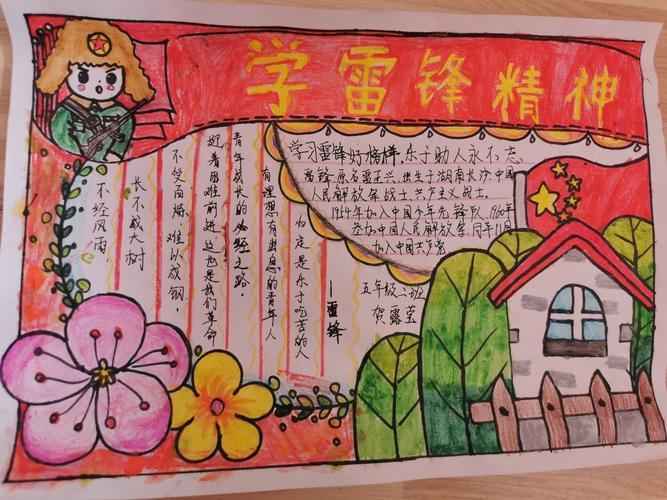 学雷锋精神
不经风雨
长不成大树
不受百炼,难以成钢。
迎着困难前进,这也是我们革命
青年成长的必经之路。
有理想有出息的青年人
必定是乐于吃苦的人
—雷锋
学习雷锋好榜样,乐于助人永不忘
雷锋,原名雷正兴,出生于湖南长沙,中国
人民解放军战士,共产主义战士。
年加入中国少年先锋队,1960年
参加中国人民解放军,同年11月
加入中国共产党
五年级三班
贺露莹